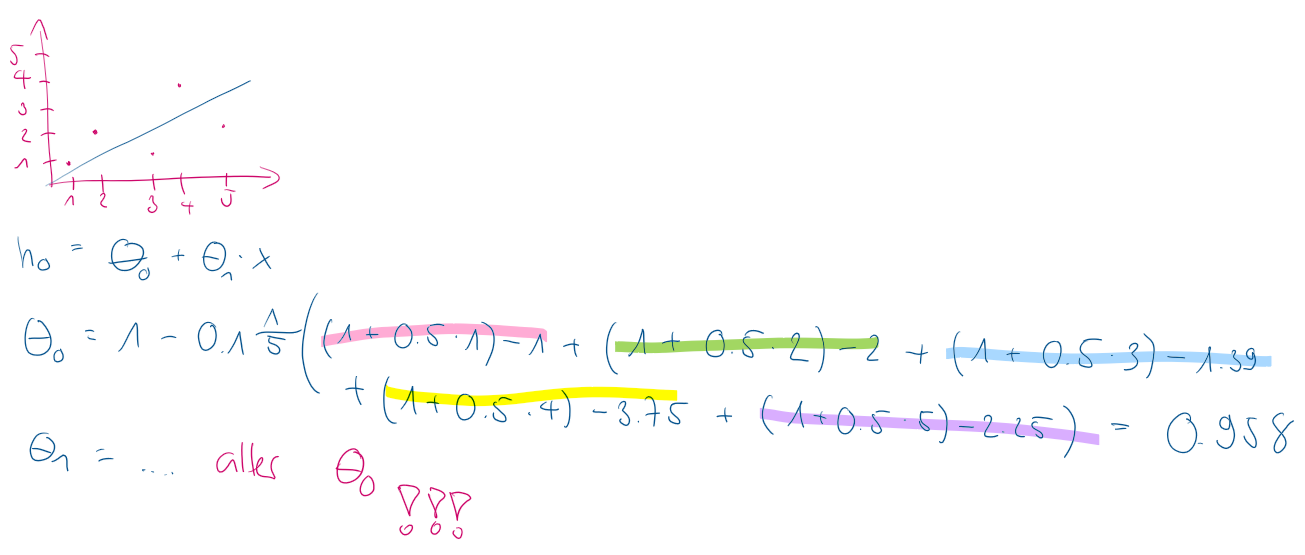 5
4
3
2
1
1 2 3 4 5
h₀ = Θ₀ + Θ₁ · x
Θ₀ = 1 - 0.1 1/5 ( (1 + 0.5 · 1) - 1 + (1 + 0.5 · 2) - 2 + (1 + 0.5 · 3) - 1.39
+ (1 + 0.5 · 4) - 3.75 + (1 + 0.5 · 5) - 2.25 ) = 0.958
Θ₁ = .... altes Θ₀ !!!